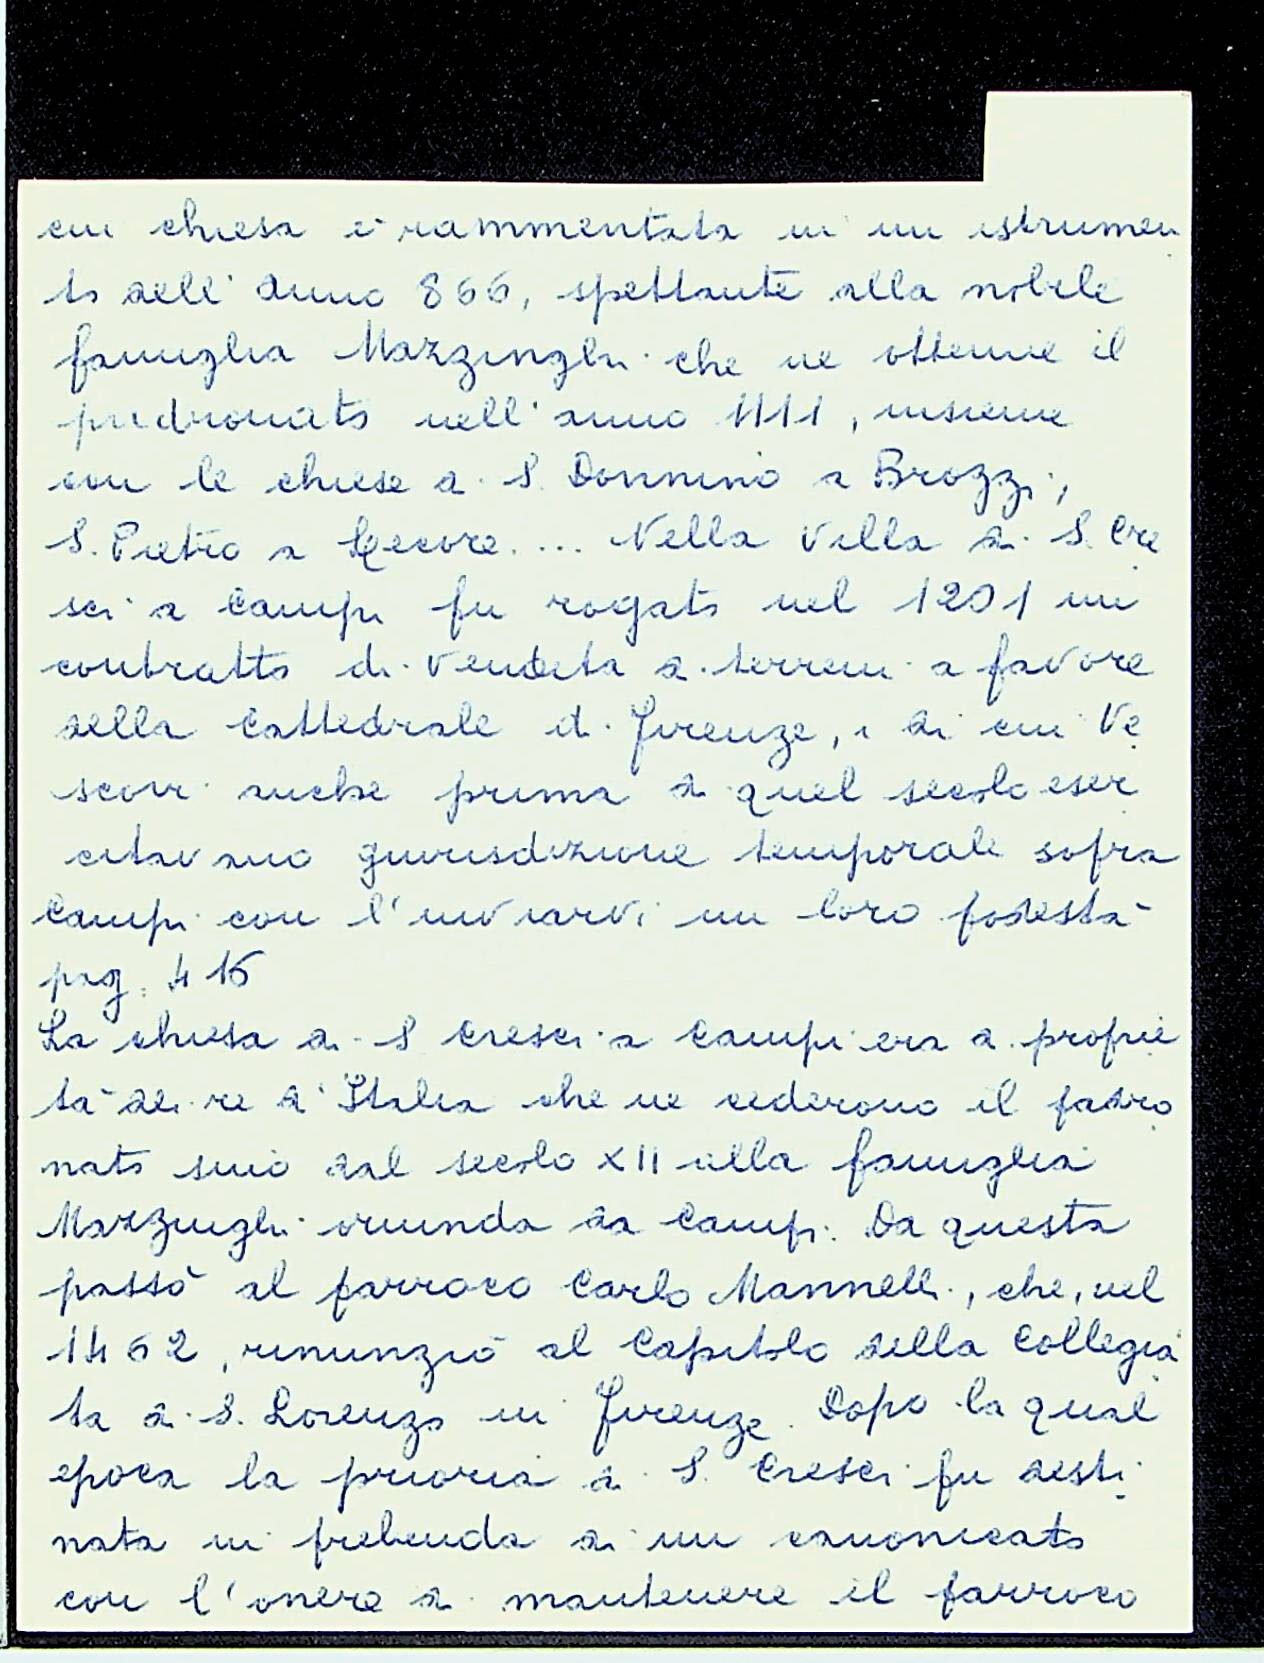 cui chiesa è rammentata in un istrumen
to dell'anno 866, spettante alla nobile
famiglia Mazzinghi che ne ottenne il
padronato nell'anno 1111, insieme
con le chiese di S. Donnino a Brozzi,
S. Pietro a Lecore.... Nella Villa di S. Cre
sci a Campi fu rogato nel 1201 un
contratto di vendita di terreni a favore
della Cattedrale di Firenze, i di cui Ve
scovi anche prima di quel secolo eser
citavano giurisdizione temporale sopra
Campi con l'inviarvi un loro podestà
pag. 416
La chiesa di S Cresci a Campi era di proprie
tà dei re d'Italia che ne cederono il padro
nato sino dal secolo XII alla famiglia
Mazzinghi oriunda da Campi. Da questa
passò al parroco Carlo Mannelli, che, nel
1462, rinunziò al Capitolo della Collegia
ta di S. Lorenzo in Firenze. Dopo la qual
epoca la prioria di S. Cresci fu desti
nata in prebenda di un canonicato
con l'onere di mantenere il parroco